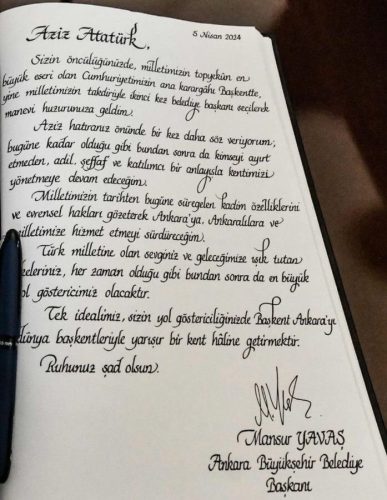 Aziz Atatürk,
5 Nisan 2024
Sizin öncülüğünüzde, milletimizin topyekûn en
büyük eseri olan Cumhuriyetimizin ana karargâhı Başkentte,
yine milletimizin takdiriyle ikinci kez belediye başkanı seçilerek
manevi huzurunuza geldim.
Aziz hatıranız önünde bir kez daha söz veriyorum;
bugüne kadar olduğu gibi bundan sonra da kimseyi ayırt
etmeden, adil, şeffaf ve katılımcı bir anlayışla kentimizi
yönetmeye devam edeceğim.
Milletimizin tarihten bugüne süregelen kadim özelliklerini
ve evrensel hakları gözeterek Ankara'ya, Ankaralılara ve
milletimize hizmet etmeyi sürdüreceğim.
Türk milletine olan sevginiz ve geleceğimize ışık tutan
ilkeleriniz, her zaman olduğu gibi bundan sonra da en büyük
yol göstericimiz olacaktır.
Tek idealimiz, sizin yol göstericiliğinizde Başkent Ankara'yı
dünya başkentleriyle yarışır bir kent hâline getirmektir.
Ruhunuz şad olsun.
Mansur YAVAŞ
Ankara Büyükşehir Belediye
Başkanı